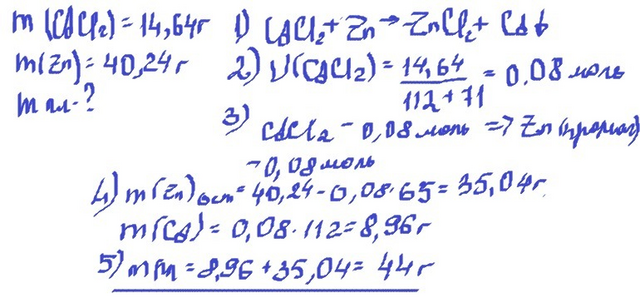 m(CdCl₂) = 14,64г 1) CdCl₂ + Zn → ZnCl₂ + Cd↓
m(Zn) = 40,24г 2) ν(CdCl₂) = 14,64 / 112+71 = 0,08 моль
m пл - ?
3) CdCl₂ - 0,08 моль => Zn
- 0,08 моль
4) m(Zn)ост = 40,24 - 0,08·65 = 35,04г
m(Cd) = 0,08·112 = 8,96г
5) mпл = 8,96 + 35,04 = 44г